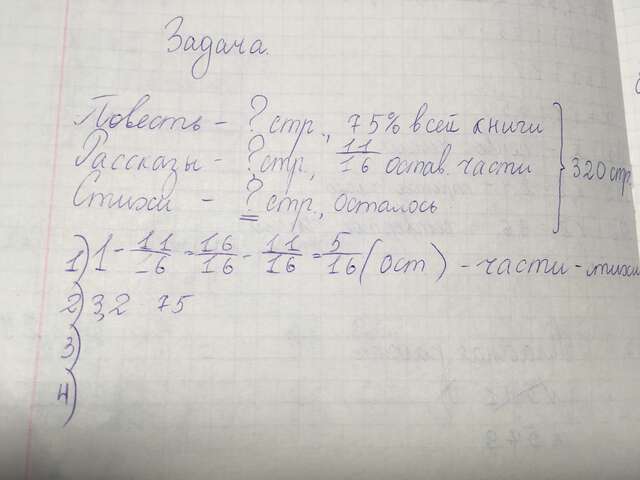 Задача.
Повесть - ? стр., 75% всей книги
Рассказы - ? стр., 11/16 остав. части } 320 стр
Стихи - ? стр., осталось.
1) 1 - 11/16 = 16/16 - 11/16 = 5/16 (ост) - части - стихи
2) 32 75
3)
4)